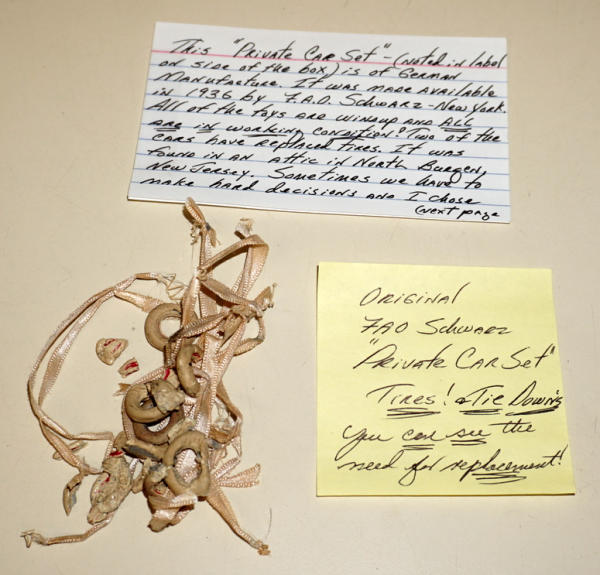 This "Private Car Set" - (noted in label
on side of the box) is of German
Manufacture. It was made available
in 1936 by F.A.O. Schwarz - New York.
All of the toys are windup and ALL
are in working condition! Two of the
cars have replaced tires. It was
found in an attic in North Bergen,
New Jersey. Sometimes we have to
make hard decisions and I chose
(next page
Original
FAO Schwarz
"Private Car Set"
Tires! & Tie Downs
You can see the
need for replacement!